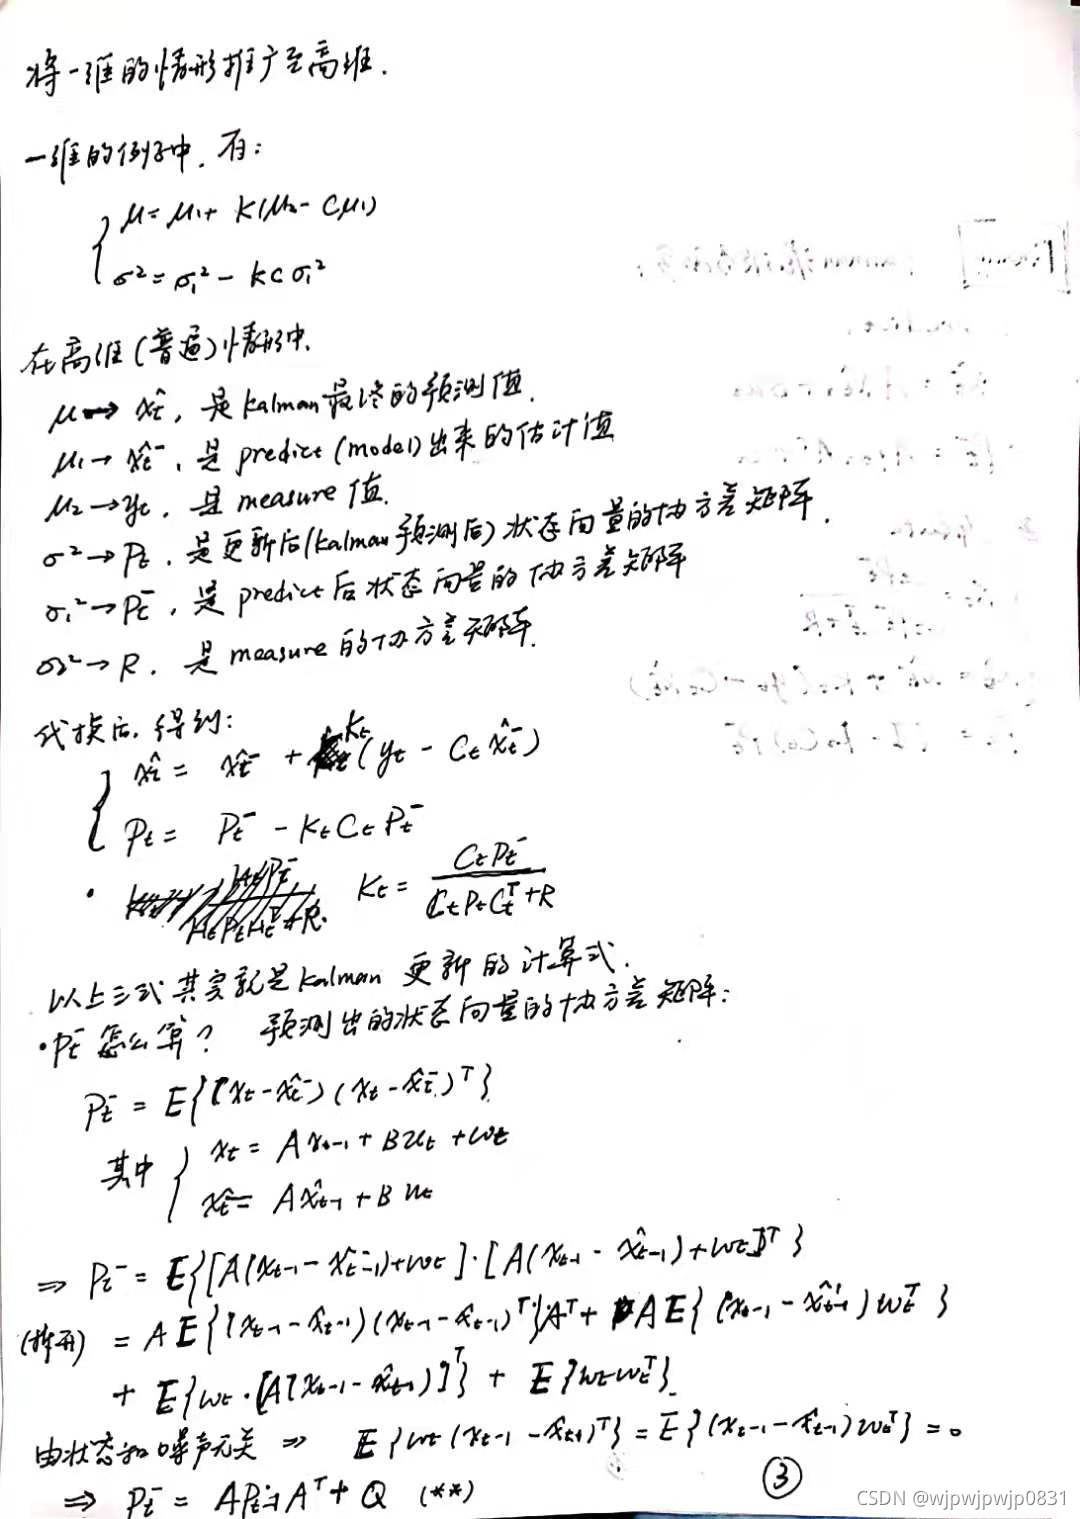 将一维的情形推广至高维.
一维的例子中, 有:
μ = μ₁ + K(μ₂ - Cμ₁)
σ² = σ₁² - KCσ₁²
在高维(普遍)情形中.
μ → x̂t, 是kalman最终的预测值.
μ₁ → x̂t⁻, 是predict(model)出来的估计值
μ₂ → yt, 是measure值.
σ² → Pt, 是更新后(kalman预测后)状态向量的协方差矩阵.
σ₁² → Pt⁻, 是predict后状态向量的协方差矩阵
σ₂² → R, 是measure的协方差矩阵.
代换后, 得到:
x̂t = x̂t⁻ + Kt(yt - Ct x̂t⁻)
Pt = Pt⁻ - KtCtPt⁻
• Kt = CtPt⁻ / (CtPtCtᵀ + R)
以上三式其实就是kalman更新的计算式.
• Pt⁻怎么算? 预测出的状态向量的协方差矩阵:
Pt⁻ = E{(xt - x̂t⁻)(xt - x̂t⁻)ᵀ}
其中 { xt = Axt-1 + But + wt
x̂t⁻ = Ax̂t-1 + But
⇒ Pt⁻ = E{[A(xt-1 - x̂t-1⁻) + wt]·[A(xt-1 - x̂t-1) + wt]ᵀ}
(拆开) = AE{(xt-1 - x̂t-1)(xt-1 - x̂t-1)ᵀ}Aᵀ + AE{(xt-1 - x̂t-1)wtᵀ}
+ E{wt·[A(xt-1 - x̂t-1)]ᵀ} + E{wtwtᵀ}
由状态和噪声无关 ⇒ E{wt(xt-1 - x̂t-1)ᵀ} = E{(xt-1 - x̂t-1)wtᵀ} = 0
⇒ Pt⁻ = APt-1Aᵀ + Q (**)
③
CSDN @wjpwjpwjp0831